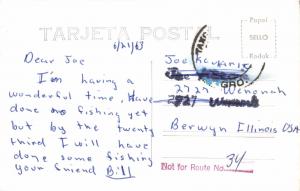 TARJETA POSTAL
6/21/63
Papel
SELLO
Kodak
Dear Joe
I'm having a
wonderful time, Have
done no fishing yet
but by the twenty
third I will have
done some fishing
your friend Bill
Joe
GRO.
2727 Wenonah
2727 Wenonah
Berwyn Illinois USA
Not for Route No. 34